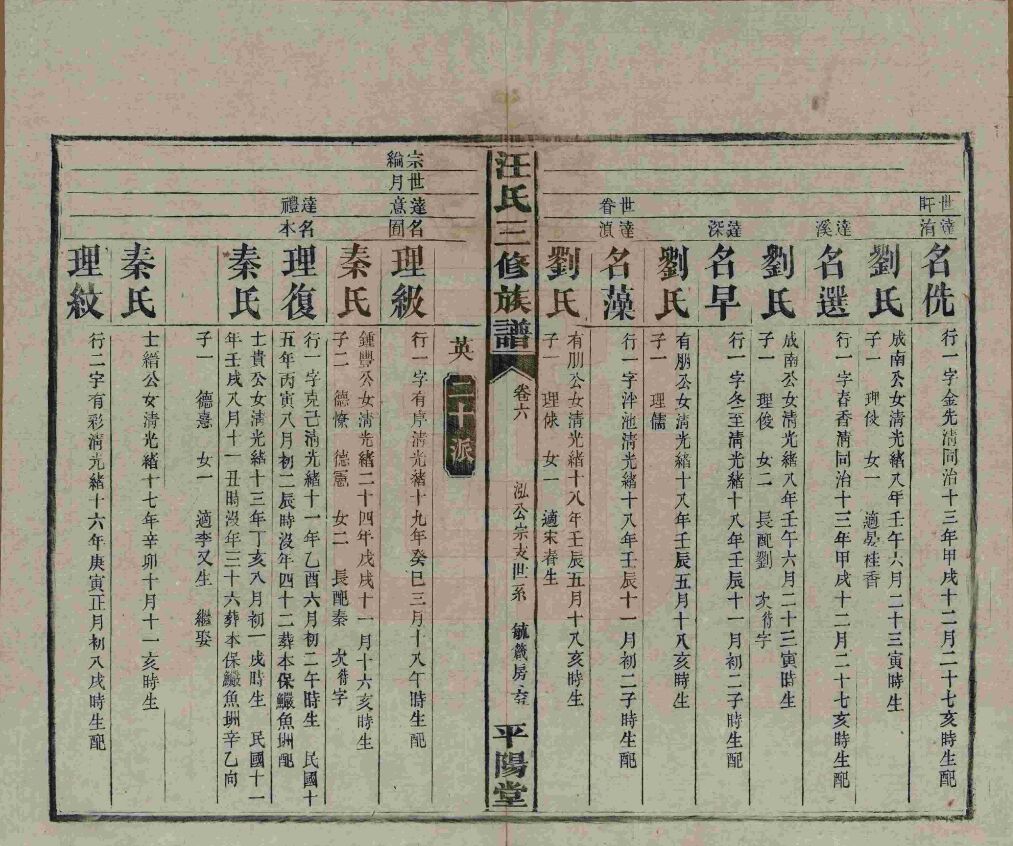 世達
盱洧
名侁
行一字金先淸同治十三年甲戌十二月二十七亥時生配
劉氏
成南公女淸光緒八年壬午六月二十三寅時生
子一 理伎 女一 適晏桂香
達
溪
名選
行一字春香淸同治十三年甲戌十二月二十七亥時生配
劉氏
成南公女淸光緒八年壬午六月二十三寅時生
子一 理俊 女二 長配劉 次待字
達
深
名早
行一字冬至淸光緒十八年壬辰十一月初二子時生配
劉氏
有朋公女淸光緒十八年壬辰五月十八亥時生
子一 理儒
世達
眷滇
名藻
行一字泮池淸光緒十八年壬辰十一月初二子時生配
劉氏
有朋公女淸光緒十八年壬辰五月十八亥時生
子一 理俅 女一 適宋春生
汪氏三修族譜
卷六
泓公宗支世系
毓 房
平陽堂
英
二十派
宗世達名
綸月意圊
理級
行一字有序淸光緒十九年癸巳三月十八午時生配
秦氏
鍾豐公女淸光緒二十四年戊戌十一月十六亥時生
子二 德憮 德憲 女二 長配秦 次待字
達名
禮本
理復
行一字克己淸光緒十一年乙酉六月初二午時生 民國十
五年丙寅八月初二辰時沒年四十二葬本保鱖魚垇配
秦氏
士貴公女淸光緒十三年丁亥八月初一戌時生 民國十一
年壬戌八月十一丑時沒年三十六葬本保鱖魚垇辛乙向
子一 德憙 女一 適李又生 繼娶
秦氏
士縉公女淸光緒十七年辛卯十月十一亥時生
理紋
行二字有彩淸光緒十六年庚寅正月初八戌時生配